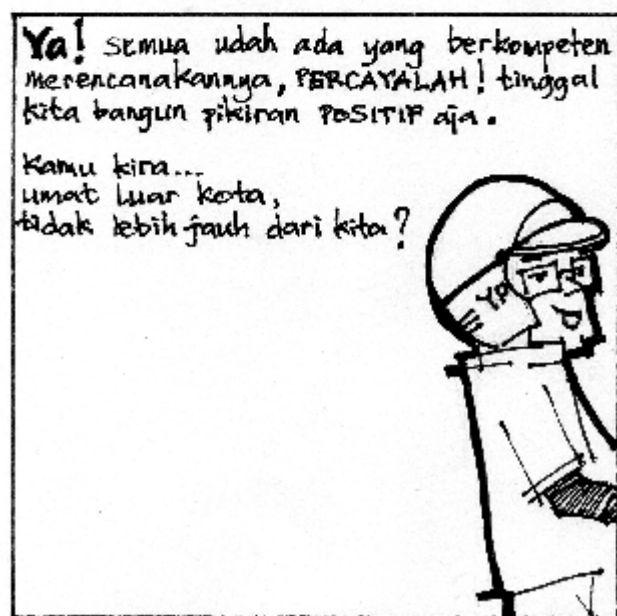 Ya! semua udah ada yang berkompeten
merencanakannya, PERCAYALAH! tinggal
kita bangun pikiran POSITIF aja.
Kamu kira...
umat luar kota,
tidak lebih jauh dari kita?
YP